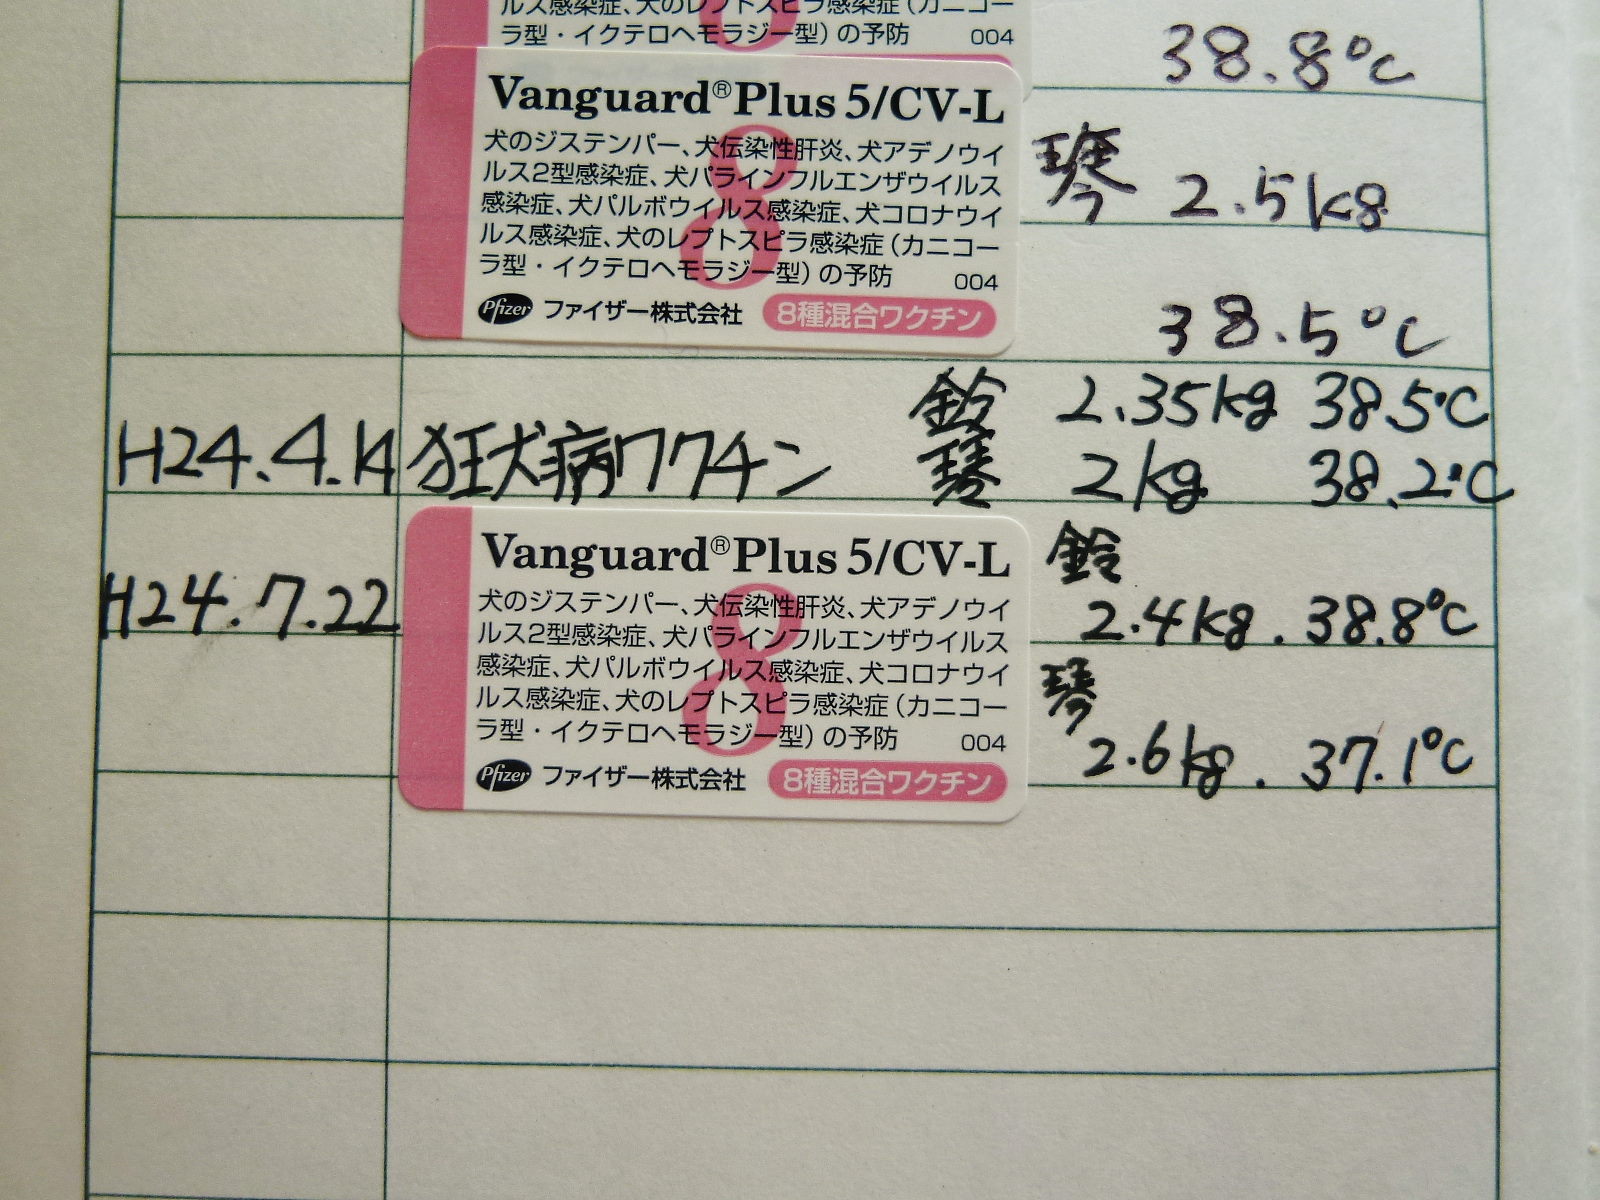 ルス感染症、犬のレプトスピラ感染症（カニコー
ラ型・イクテロヘモラジー型）の予防 004
38.8℃
Vanguard®Plus 5/CV-L
犬のジステンパー、犬伝染性肝炎、犬アデノウイ
ルス2型感染症、犬パラインフルエンザウイルス
感染症、犬パルボウイルス感染症、犬コロナウイ
ルス感染症、犬のレプトスピラ感染症（カニコー
ラ型・イクテロヘモラジー型）の予防 004
8
Pfizer ファイザー株式会社 8種混合ワクチン
琴 2.5kg
38.5℃
鈴 2.35kg 38.5℃
H24.4.14 狂犬病ワクチン 琴 2kg 38.2℃
H24.7.22
Vanguard®Plus 5/CV-L
犬のジステンパー、犬伝染性肝炎、犬アデノウイ
ルス2型感染症、犬パラインフルエンザウイルス
感染症、犬パルボウイルス感染症、犬コロナウイ
ルス感染症、犬のレプトスピラ感染症（カニコー
ラ型・イクテロヘモラジー型）の予防 004
8
Pfizer ファイザー株式会社 8種混合ワクチン
鈴
2.4kg. 38.8℃
琴
2.6kg. 37.1℃